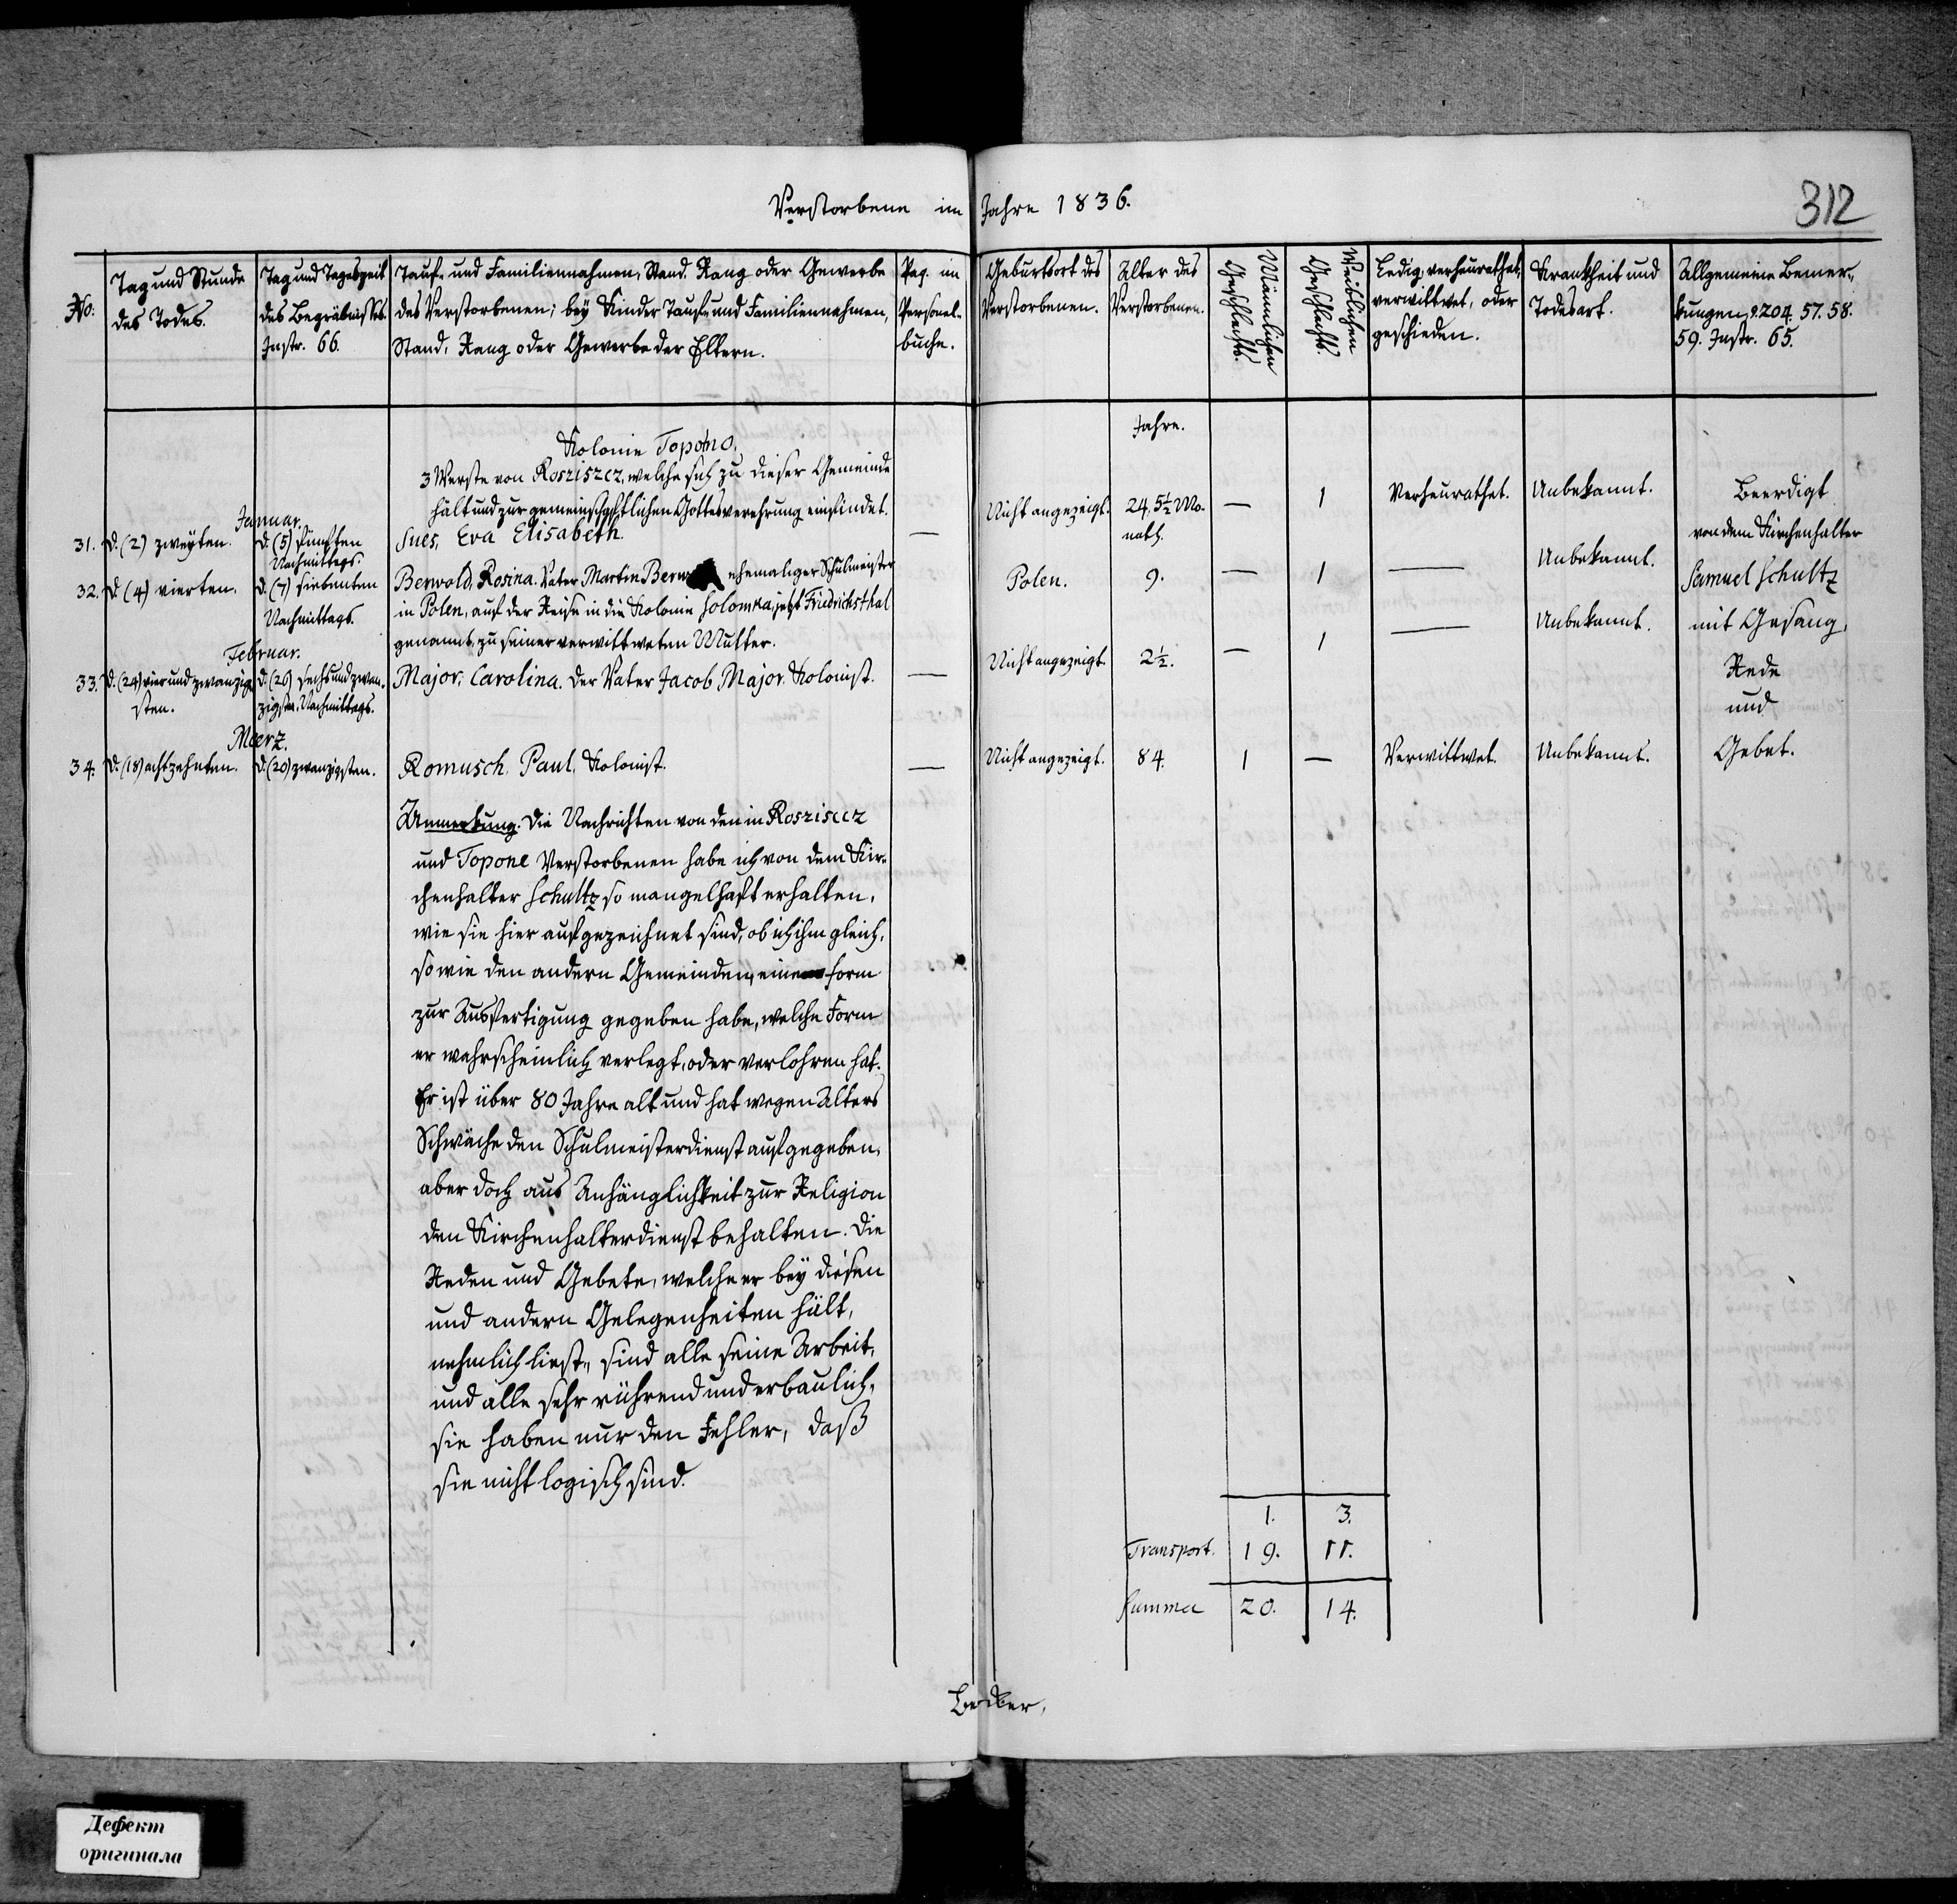 Verstorbene im Jahre 1836.
312
No.
Tag und Stunde
des Todes.
Tag und Tageszeit
des Begräbnisses.
Instr. 66.
Tauf- und Familiennahmen, Stand, Rang oder Gewerbe
des Verstorbenen; bey Kinder Tauf- und Familiennahmen,
Stand, Rang oder Gewerbe der Eltern.
Pag. im
Personel-
buche.
Geburtsort des
Verstorbenen.
Alter des
Verstorbenen.
Männlichen
Geschlechts.
Weiblichen
Geschlechts.
Ledig, verheurathet,
verwittwet, oder
geschieden.
Krankheit und
Todesart.
Allgemeine Bemer-
kungen, §. 204. 57. 58.
59. Instr. 65.
Jahre.
Kolonie Topono.
3 Werste von Rosziszcz, welche sich zu dieser Gemeinde
hält und zur gemeinschaftlichen Gottesverehrung einfindet.
Januar.
31. d. (2) zweyten. d. (5) fünften
Nachmittags.
Sues, Eva Elisabeth. —
Nicht angezeigt. 24, 5½ Mo-
nath. — 1 Verheurathet. Unbekannt.
32. d. (4) vierten. d. (7) siebenten
Nachmittags.
Berwold, Rosina. Vater Martin Berw ehemaliger Schulmeister
in Polen, auf der Reise in die Kolonie Solomka, jetzt Friedrichsthal
genannt, zu seiner verwittweten Mutter.
Polen. 9. — 1 — Unbekannt.
Februar.
33. d. (24) vier und zwanzig-
sten.
d. (26) sechs und zwan-
zigsten, Nachmittags.
Major, Carolina. Der Vater Jacob Major Kolonist. —
Nicht angezeigt. 2½. — 1 — Unbekannt.
Maerz.
34. d. (18) achtzehnten. d. (20) zwanzigsten. Romusch, Paul, Kolonist. —
Nicht angezeigt. 84. 1 — Verwittwet. Unbekannt.
Beerdigt
von dem Kirchenhalter
Samuel Schultz
mit Gesang,
Rede
und
Gebet.
Anmerkung. Die Nachrichten von den in Rosziscez
und Topone Verstorbenen habe ich von dem Kir-
chenhalter Schultz so mangelhaft erhalten,
wie sie hier aufgezeichnet sind, ob ich ihm gleich,
so wie den andern Gemeinden, eine Form
zur Ausfertigung gegeben habe, welche Form
er wahrscheinlich verlegt, oder verlohren hat.
Er ist über 80 Jahre alt und hat wegen Alters
Schwäche den Schulmeisterdienst aufgegeben,
aber doch aus Anhänglichkeit zur Religion
den Kirchenhalterdienst behalten. Die
Reden und Gebete, welche er bey diesen
und andern Gelegenheiten hält,
nehmlich liest, sind alle seine Arbeit,
und alle sehr rührend und erbaulich,
sie haben nur den Fehler, daß
sie nicht logisch sind.
1. 3.
Transport. 19. 11.
Summa 20. 14.
Becker.
Дефект
оригинала